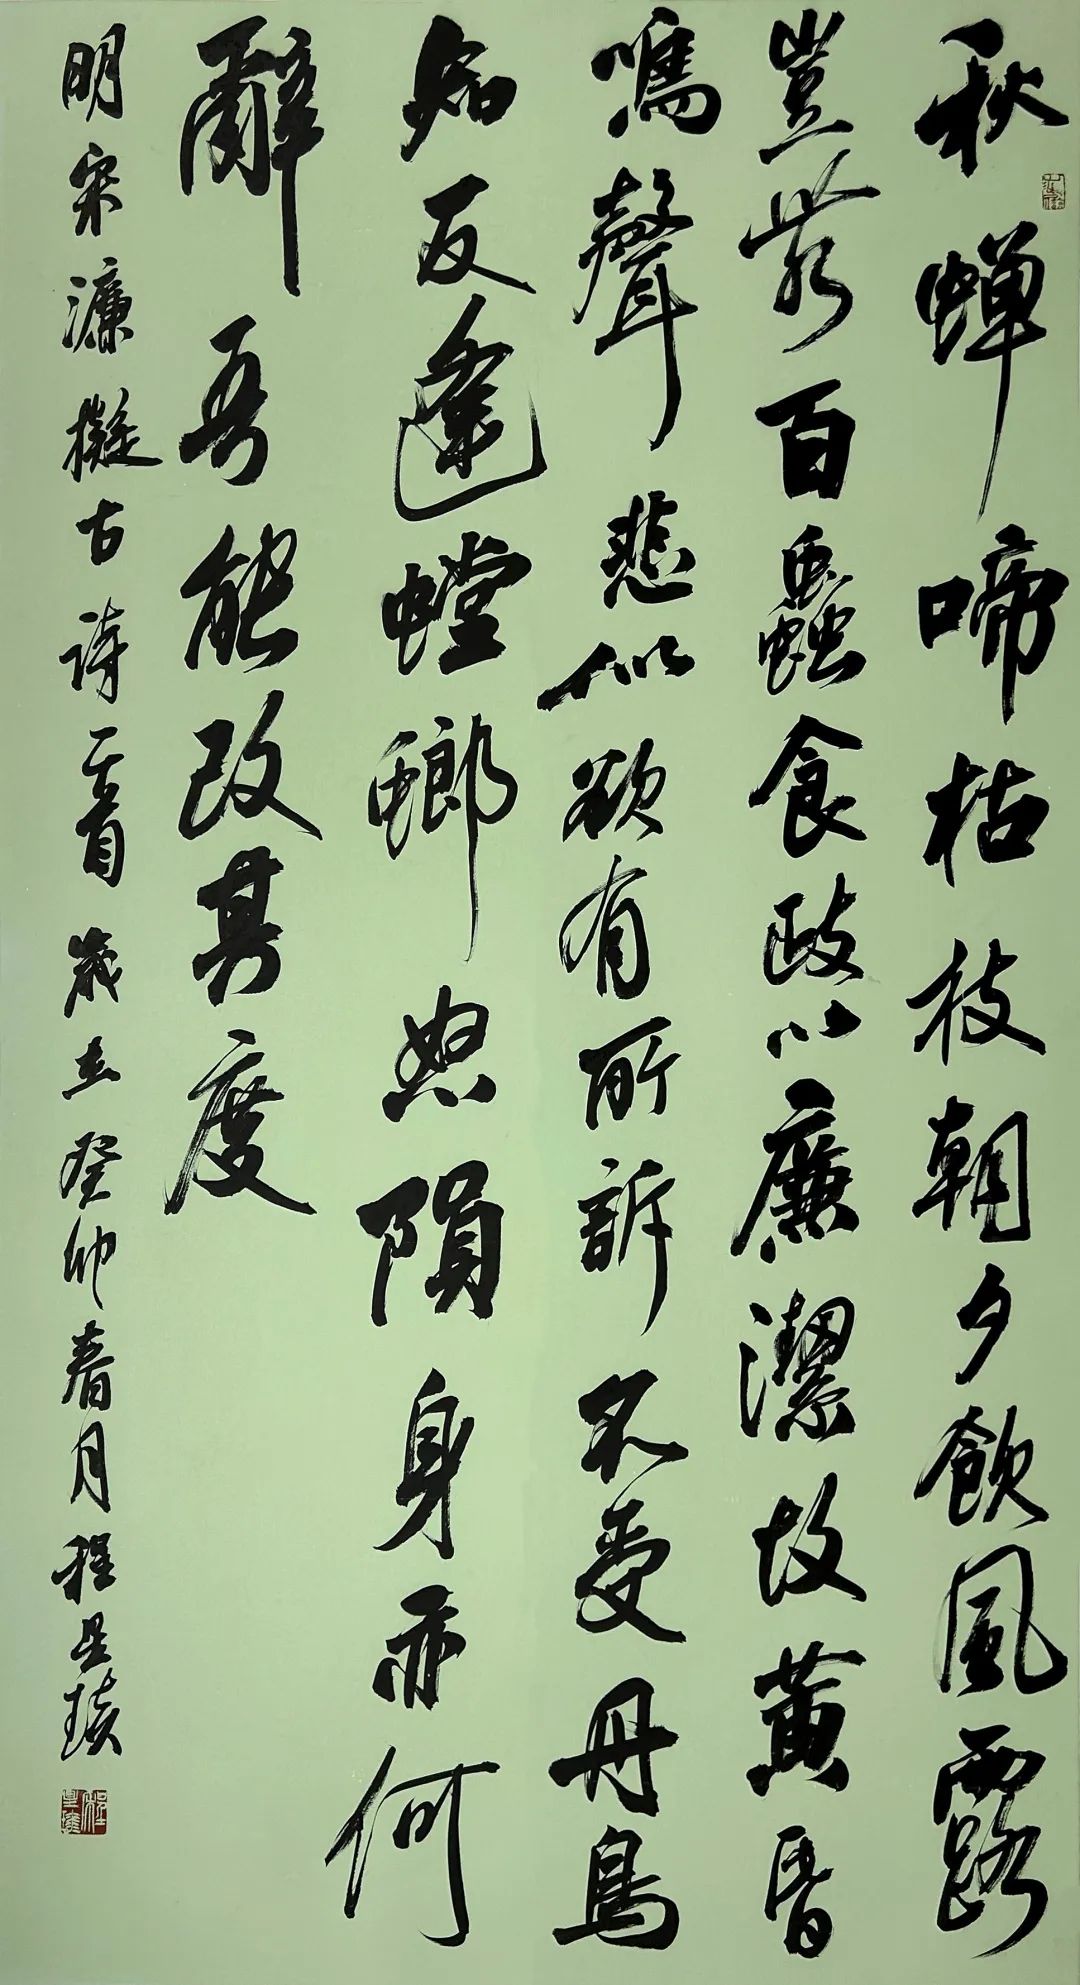 秋蝉啼枯枝朝夕飲風露
豈求百蟲食政以廉潔故黄昏
鳴聲悲似欲有所訴不受丹鳥
知反逢螳螂怒隕身亦何
辭吾能改其度
明宋濂擬古诗一首 歲在癸卯春月程